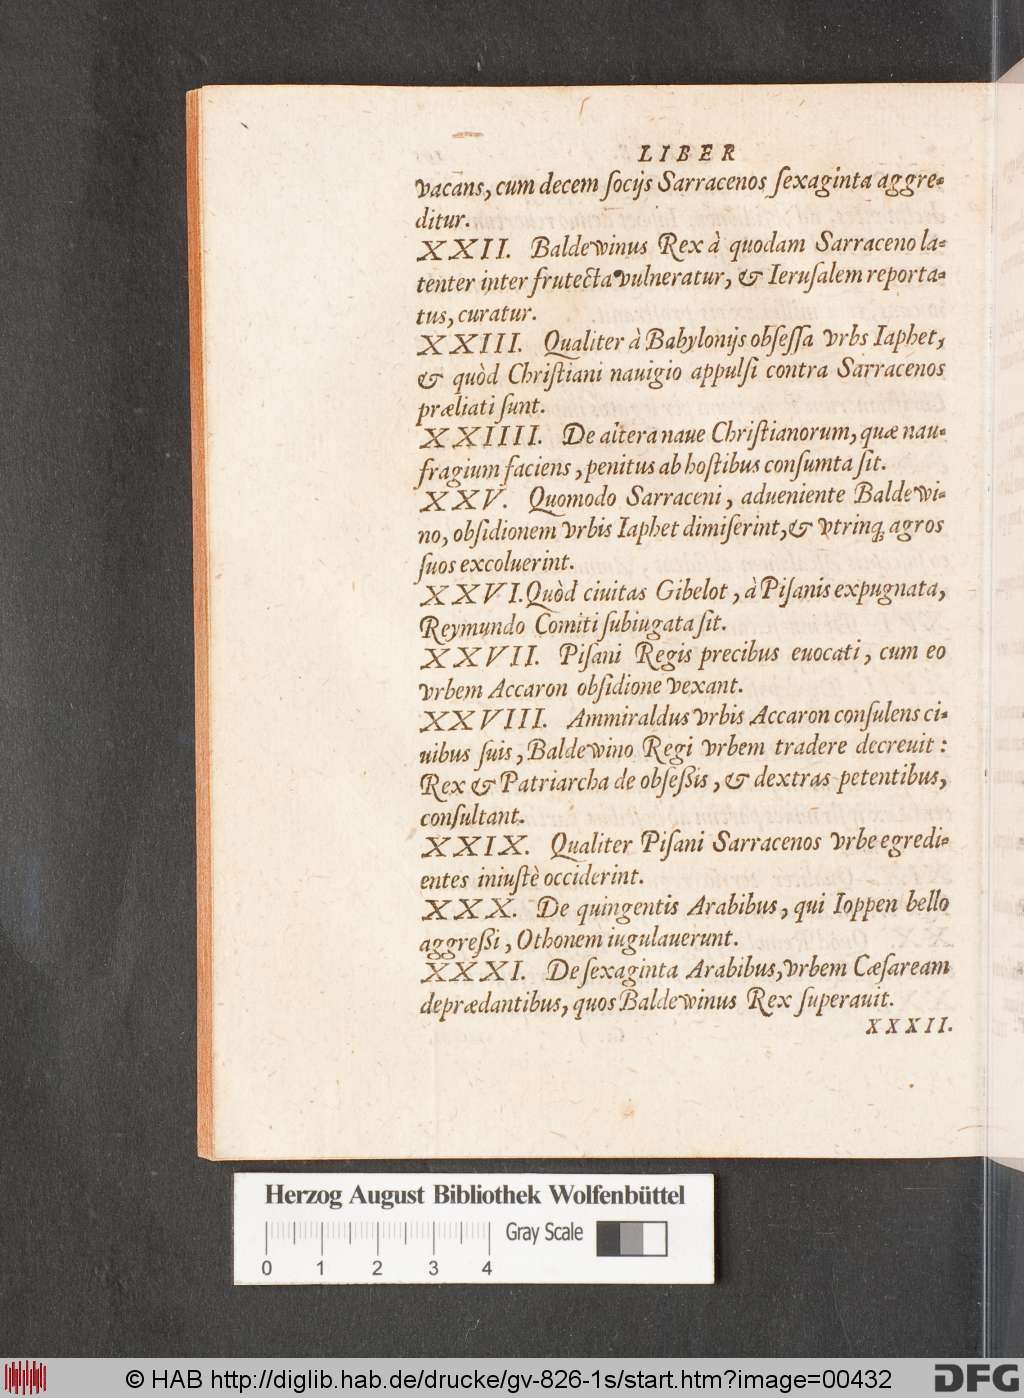 LIBER
vacans, cum decem socijs Sarracenos sexaginta aggre-
ditur.
XXII. Baldewinus Rex à quodam Sarraceno la-
tenter inter frutecta vulneratur, & Ierusalem reporta-
tus, curatur.
XXIII. Qualiter à Babylonijs obsessa vrbs Iaphet,
& quòd Christiani nauigio appulsi contra Sarracenos
præliati sunt.
XXIIII. De altera naue Christianorum, quæ nau-
fragium faciens, penitus ab hostibus consumta sit.
XXV. Quomodo Sarraceni, adueniente Baldewi-
no, obsidionem vrbis Iaphet dimiserint, & vtrinq; agros
suos excoluerint.
XXVI. Quòd ciuitas Gibelot, à Pisanis expugnata,
Reymundo Comiti subiugata sit.
XXVII. Pisani Regis precibus euocati, cum eo
vrbem Accaron obsidione vexant.
XXVIII. Ammiraldus vrbis Accaron consulens ci-
uibus suis, Baldewino Regi vrbem tradere decreuit:
Rex & Patriarcha de obseßis, & dextras petentibus,
consultant.
XXIX. Qualiter Pisani Sarracenos vrbe egredi-
entes iniustè occiderint.
XXX. De quingentis Arabibus, qui Ioppen bello
aggreßi, Othonem iugulauerunt.
XXXI. De sexaginta Arabibus, vrbem Cæsaream
deprædantibus, quos Baldewinus Rex superauit.
XXXII.
Herzog August Bibliothek Wolfenbüttel
Gray Scale
0 1 2 3 4
© HAB http://diglib.hab.de/drucke/gv-826-1s/start.htm?image=00432
DFG